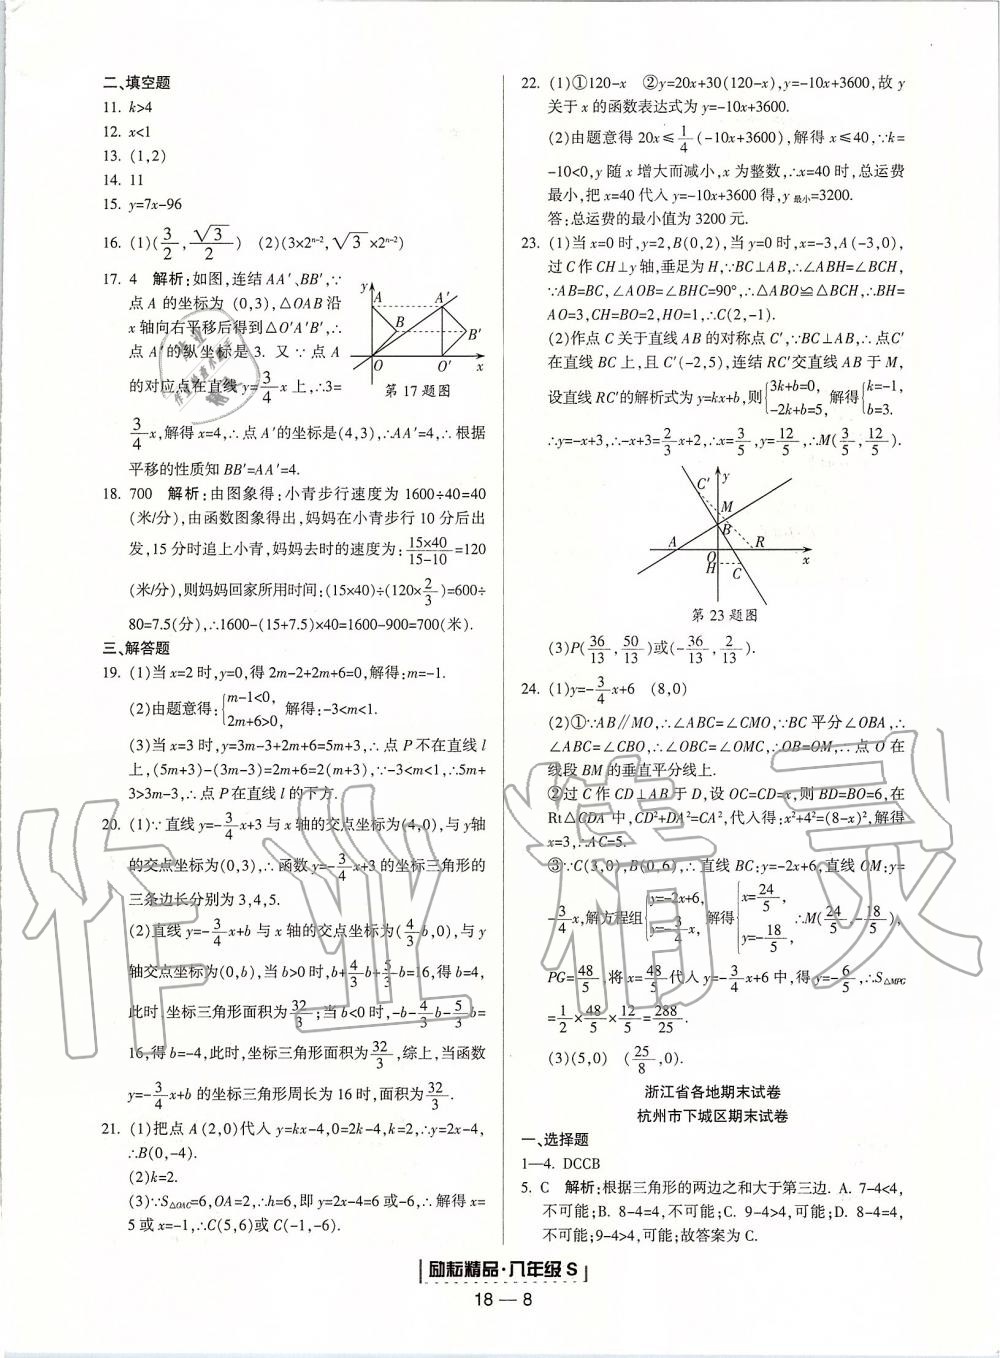 二、填空题
11. k>4
12. x<1
13. (1,2)
14. 11
15. y=7x-96
16. (1)(3/2,√3/2) (2)(3×2ⁿ⁻²,√3×2ⁿ⁻²)
17. 4 解析:如图,连结AA′、BB′,∵
点A的坐标为(0,3),△OAB沿
x轴向右平移后得到△O′A′B′,∴
点A′的纵坐标是3. 又∵点A
的对应点在直线y=3/4x上,∴3=
3/4x,解得x=4,∴点A′的坐标是(4,3),∴AA′=4,∴根据
平移的性质知BB′=AA′=4.
y
A A′
B B′
O O′ x
第17题图
18. 700 解析:由图象得:小青步行速度为1600÷40=40
(米/分),由函数图象得出,妈妈在小青步行10分后出
发,15分时追上小青,妈妈去时的速度为:15×40/15-10=120
(米/分),则妈妈回家所用时间:(15×40)÷(120×2/3)=600÷
80=7.5(分),∴1600-(15+7.5)×40=1600-900=700(米).
三、解答题
19. (1)当x=2时,y=0,得2m-2+2m+6=0,解得:m=-1.
(2)由题意得:{m-1<0,
2m+6>0, 解得:-3<m<1.
(3)当x=3时,y=3m-3+2m+6=5m+3,∴点P不在直线l
上,(5m+3)-(3m-3)=2m+6=2(m+3),∵-3<m<1,∴5m+
3>3m-3,∴点P在直线l的下方.
20. (1)∵直线y=-3/4x+3与x轴的交点坐标为(4,0),与y轴
的交点坐标为(0,3),∴函数y=-3/4x+3的坐标三角形的
三条边长分别为3,4,5.
(2)直线y=-3/4x+b与x轴的交点坐标为(4/3b,0),与y
轴交点坐标为(0,b),当b>0时,b+4/3b+5/3b=16,得b=4,
此时,坐标三角形面积为32/3;当b<0时,-b-4/3b-5/3b=
16,得b=-4,此时,坐标三角形面积为32/3,综上,当函数
y=-3/4x+b的坐标三角形周长为16时,面积为32/3.
21. (1)把点A(2,0)代入y=kx-4,0=2k-4,k=2,∴y=2x-4,
∴B(0,-4).
(2)k=2.
(3)∵S△OAC=6,OA=2,∴h=6,即y=2x-4=6或-6,∴解得x=
5或x=-1,∴C(5,6)或C(-1,-6).
22. (1)①120-x ②y=20x+30(120-x),y=-10x+3600,故y
关于x的函数表达式为y=-10x+3600.
(2)由题意得20x≤1/4(-10x+3600),解得x≤40,∵k=
-10<0,y随x增大而减小,x为整数,∴x=40时,总运费
最小,把x=40代入y=-10x+3600得,y最小=3200.
答:总运费的最小值为3200元.
23. (1)当x=0时,y=2,B(0,2),当y=0时,x=-3,A(-3,0),
过C作CH⊥y轴,垂足为H,∵BC⊥AB,∴∠ABH=∠BCH,
∵AB=BC,∠AOB=∠BHC=90°,∴△ABO≌△BCH,∴BH=
AO=3,CH=BO=2,HO=1,∴C(2,-1).
(2)作点C关于直线AB的对称点C′,∵BC⊥AB,∴点C′
在直线BC上,且C′(-2,5),连结RC′交直线AB于M,
设直线RC′的解析式为y=kx+b,则{3k+b=0,
-2k+b=5, 解得{k=-1,
b=3.
∴y=-x+3,∴-x+3=2/3x+2,∴x=3/5,y=12/5,∴M(3/5,12/5).
y
C′ M
B
A O R x
H C
第23题图
(3)P(36/13,50/13)或(-36/13,2/13).
24. (1)y=-3/4x+6 (8,0)
(2)①∵AB∥MO,∴∠ABC=∠CMO,∵BC平分∠OBA,∴
∠ABC=∠CBO,∴∠OBC=∠OMC,∴OB=OM,∴点O在
线段BM的垂直平分线上.
②过C作CD⊥AB于D,设OC=CD=x,则BD=BO=6,在
Rt△CDA中,CD²+DA²=CA²,代入得:x²+4²=(8-x)²,解得
x=3,∴AC=5.
③∵C(3,0),B(0,6),∴直线BC:y=-2x+6,直线OM:y=
-3/4x,解方程组{y=-2x+6,
y=-3/4x, 解得{x=24/5,
y=-18/5, ∴M(24/5,-18/5),
PG=48/5,将x=48/5代入y=-3/4x+6中,得y=-6/5,∴S△MPG
=1/2×48/5×12/5=288/25.
(3)(5,0) (25/8,0).
浙江省各地期末试卷
杭州市下城区期末试卷
一、选择题
1—4. DCCB
5. C 解析:根据三角形的两边之和大于第三边. A. 7-4<4,
不可能;B. 8-4=4,不可能;C. 9-4>4,可能;D. 8-4=4,
不可能;9-4>4,可能;故答案为C.
励耘精品·八年级S
18—8
作业精灵